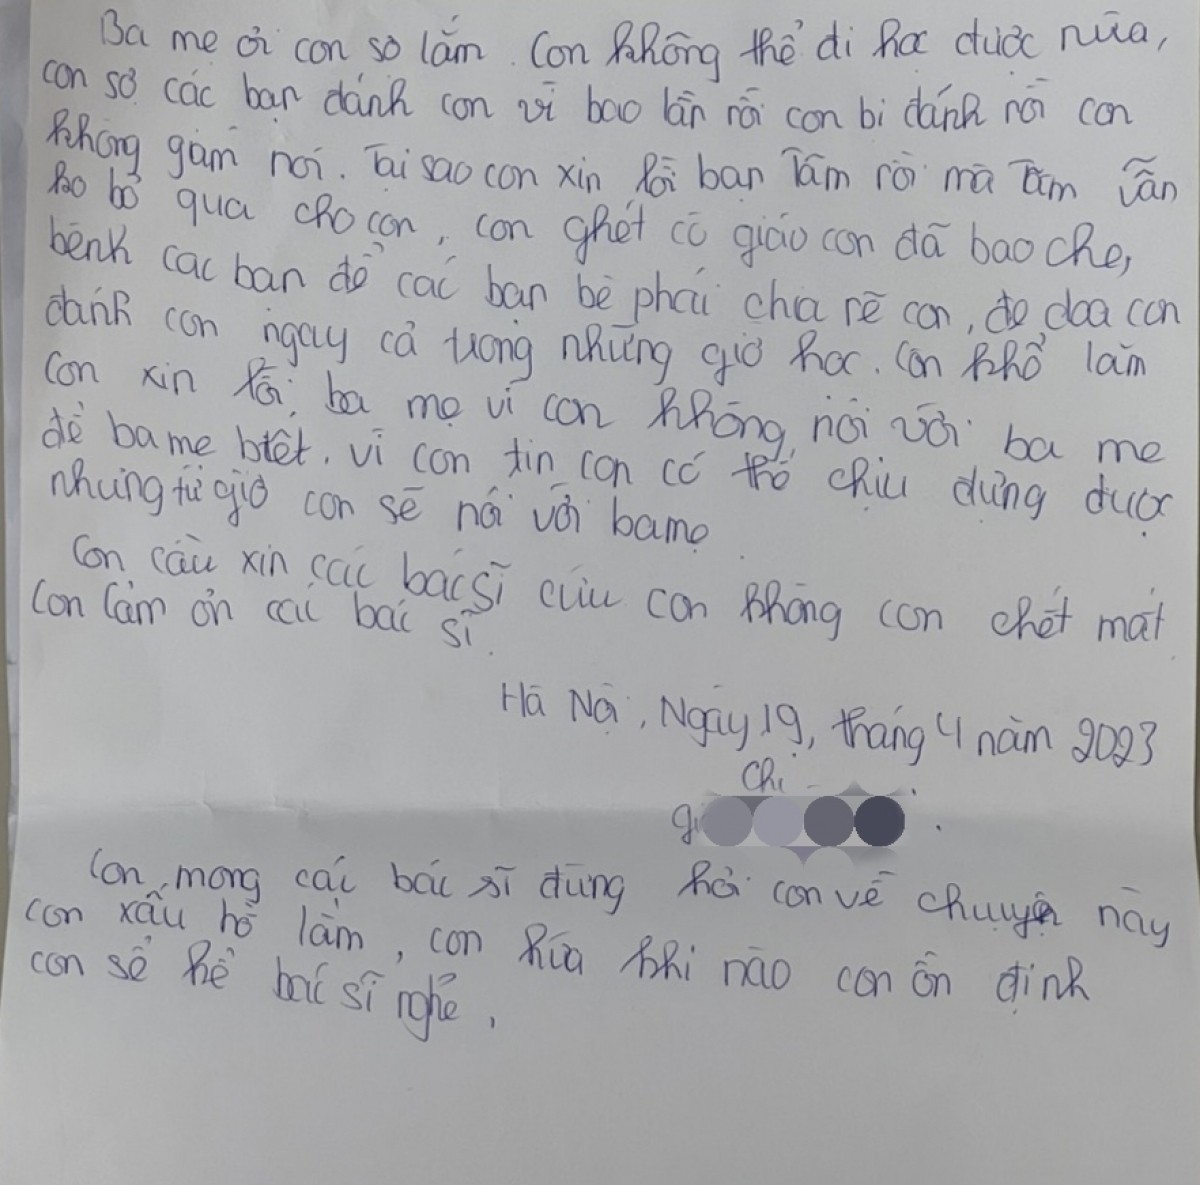 Ba mẹ ơi con sơ lắm. Con không thể đi học được nữa,
con sợ các bạn đánh con vì bao lần rồi con bị đánh rồi con
không giám nói. Tại sao con xin lỗi bạn Tâm rồi mà Tâm vẫn
ko bỏ qua cho con, con ghét cô giáo con đã bao che,
bênh các bạn để các bạn bè phái chia rẽ con, đe dọa con
đánh con ngay cả trong những giờ học. Con khổ lắm
con xin lỗi ba mẹ vì con không nói với ba mẹ
để ba mẹ biết. vì con tin con có thể chịu đựng được
nhưng từ giờ con sẽ nói với ba mẹ
Con cầu xin các bác sĩ cứu con không con chết mất
Con cảm ơn các bác sĩ.
Hà Nội, Ngày 19, tháng 4 năm 2023
Chi
Con mong các bác sĩ đừng hỏi con về chuyện này
con xấu hổ lắm, con hứa khi nào con ổn định
con sẽ kể bác sĩ nghe,